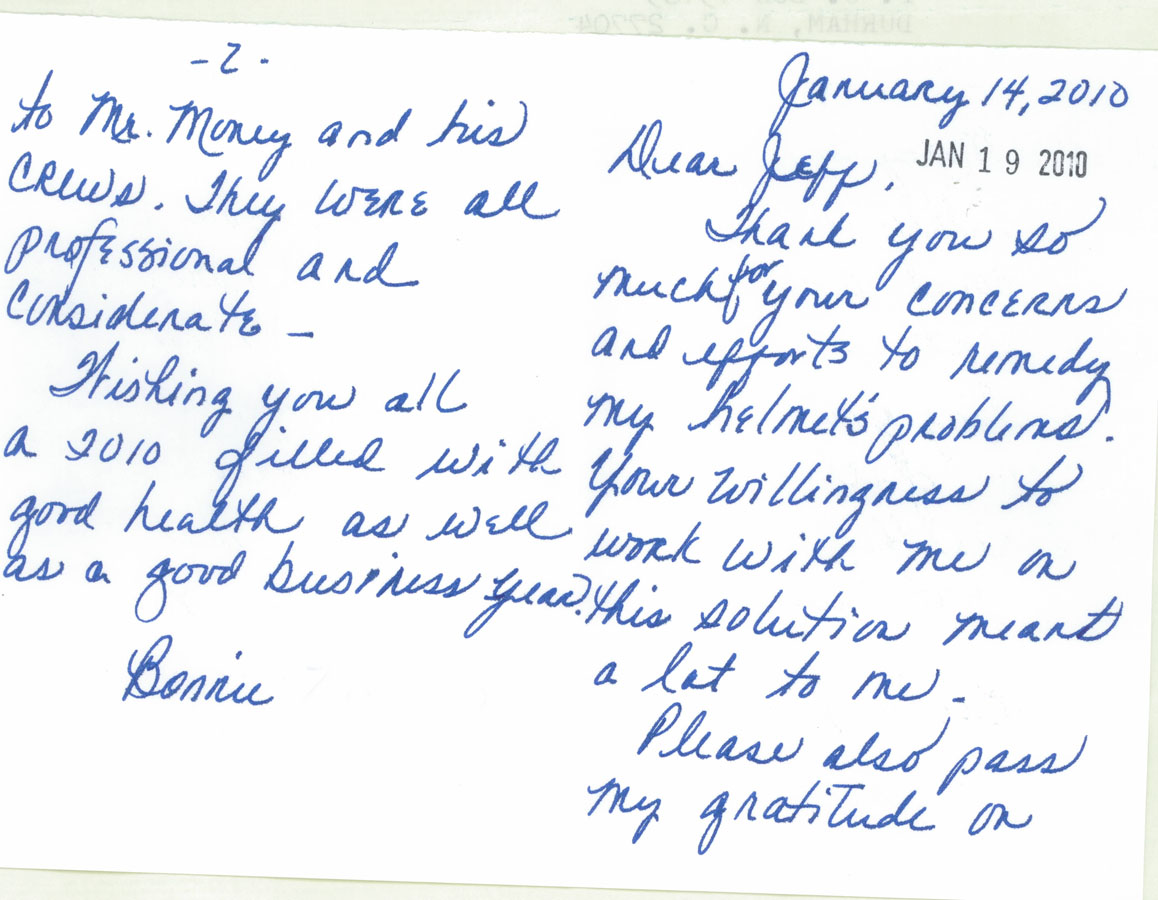 DURHAM, N. C. 27704
January 14, 2010
JAN 19 2010
Dear Jeff,
Thank you so
much for your concerns
and efforts to remedy
my helmet's problems.
Your willingness to
work with me on
this solution meant
a lot to me -
Please also pass
my gratitude on
- 2 -
to Mr. Money and his
crews. They were all
professional and
considerate -
Wishing you all
a 2010 filled with
good health as well
as a good business year.
Bonnie